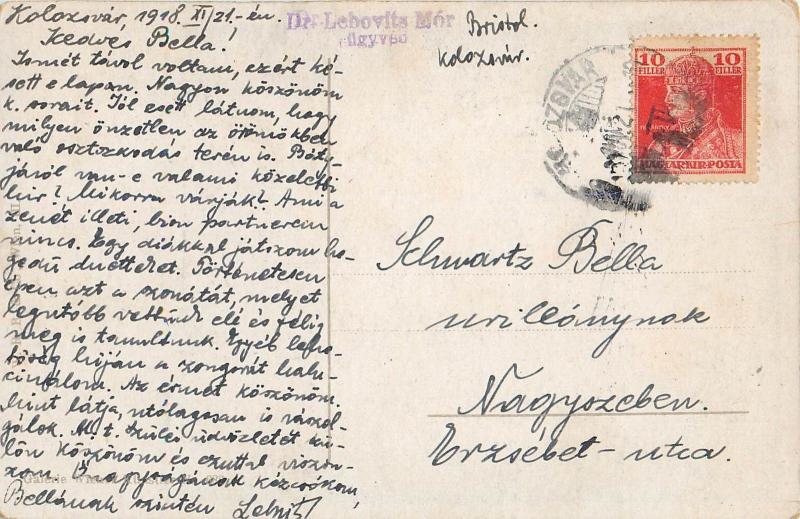 Kolozsvár, 1918. XI/21.-én.
Kedves Bella!
Ismét távol voltam, ezért ké-
sett e lapom. Nagyon köszönöm
k. sorait. Jól esett látnom, hogy
milyen önzetlen az örömökben
való osztozkodás terén is. Báty-
járól van-e valami közelebbi
hir? Mikorra várják? Ami a
zenét illeti, bizony partnerem
nincs. Egy diákkal játszom he-
gedű duetteket. Történetesen
épen azt a szonátát, melyet
legutóbb vettünk elé és félig
meg is tanultunk. Egyéb lehe-
tőség hiján a zongorát hallu-
cinálom. Az érmét köszönöm,
mint látja, utólagosan is vázol-
gálok. M. t. Szülei üdvözletét kü-
lön köszönöm és ezuttal viszon-
zom. Ő nagyságának kézcsókom,
Bellának szintén
Dr. Lebovits Mór
ügyvéd
Bristol.
Kolozsvár.
KOLOZSVÁR
10 10
FILLÉR FILLÉR
MAGYAR KIR. POSTA
Schwartz Bella
urillánynak
Nagyszeben.
Erzsébet-utca.